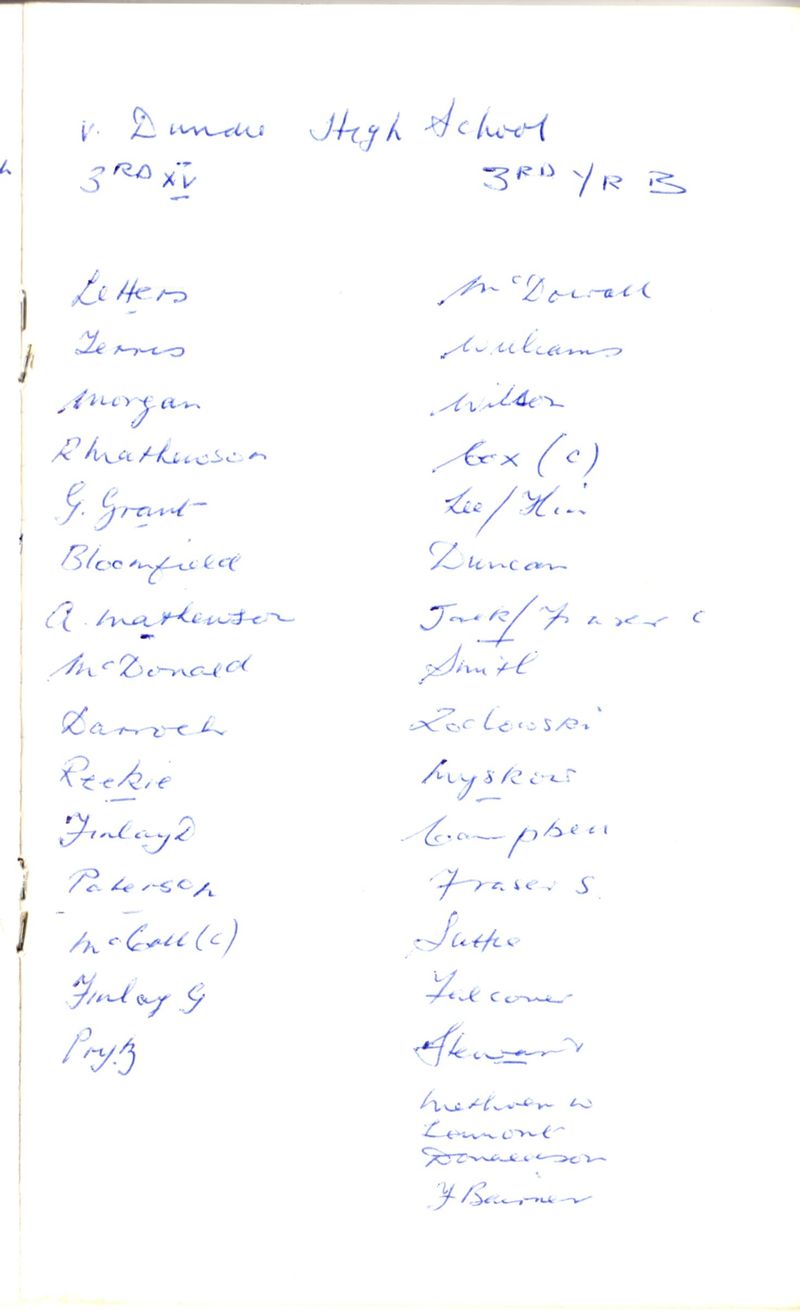 v. Dundee High School
3RD XV
Letters
Ferris
Morgan
R Mathewson
G. Grant
Bloomfield
A. Mathewson
McDonald
Darroch
Reekie
Finlay D
Paterson
McCall (c)
Finlay G
3RD YR B
McDowall
Williams
Wilson
Cox (c)
Lee/
Duncan
Jack/Fraser C
Smith
Myskow
Campbell
Fraser S.
Falconer
Stewart
Methven W
Lamont
Donaldson